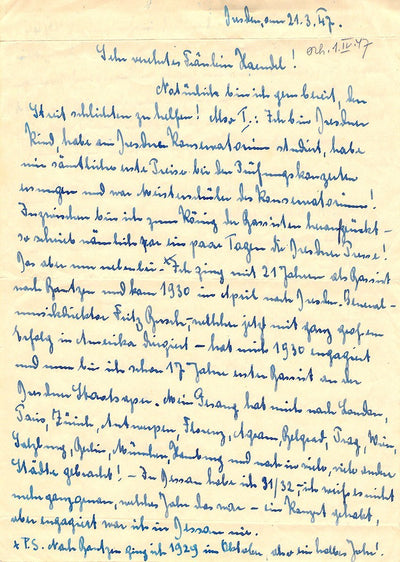 Dresden, am 21.3.47.
erh. 1.IV.47
Sehr verehrtes Fräulein Haendel!
Natürlich bin ich gern bereit, den
Streit schlichten zu helfen! Also I.: Ich bin Dresdner
Kind, habe am Dresdner Konservatorium studiert, habe
mir sämtliche erste Preise bei den Prüfungskonzerten
ersungen und war Meisterschüler des Konservatoriums!
Inzwischen bin ich zum König der Bassisten heraufgerückt –
so schrieb nämlich vor ein paar Tagen die Dresdner Presse!
Das aber nun nebenbei – × Ich ging mit 21 Jahren als Bassist
nach Bautzen und kam 1930 im April nach Dresden. General-
musikdirektor Fritz Busch – welcher jetzt mit ganz großem
Erfolg in Amerika dirigiert – hat mich 1930 engagiert
und nun bin ich schon 17 Jahre erster Bassist an der
Dresdner Staatsoper. Mein Gesang hat mich nach London,
Paris, Zürich, Antwerpen, Florenz, Agram, Belgrad, Prag, Wien,
Salzburg, Berlin, München, Hamburg und noch in viele, viele andere
Städte gebracht! – In Dessau habe ich 31/32, – ich weiß es nicht
mehr ganz genau, welches Jahr das war – ein Konzert gehabt,
aber engagiert war ich in Dessau nie.
× P.S. Nach Bautzen ging ich 1929 im Oktober, also ein halbes Jahr!